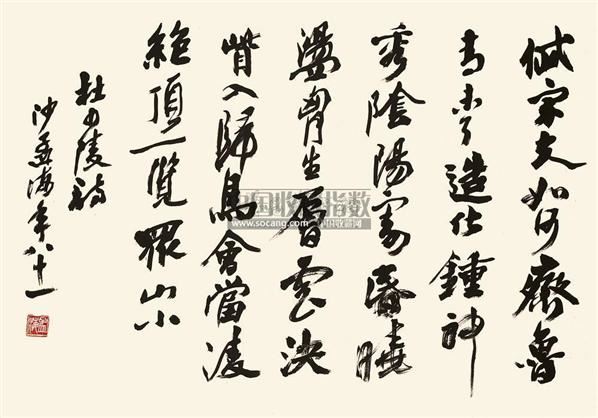 岱宗夫如何齊魯
青未了造化鍾神
秀陰陽割昏曉
盪胸生層雲決
眥入歸鳥會當凌
絶頂一覽眾山小
杜少陵詩
沙孟海年八十一
中国收藏指数
www.socang.com 中国收藏网